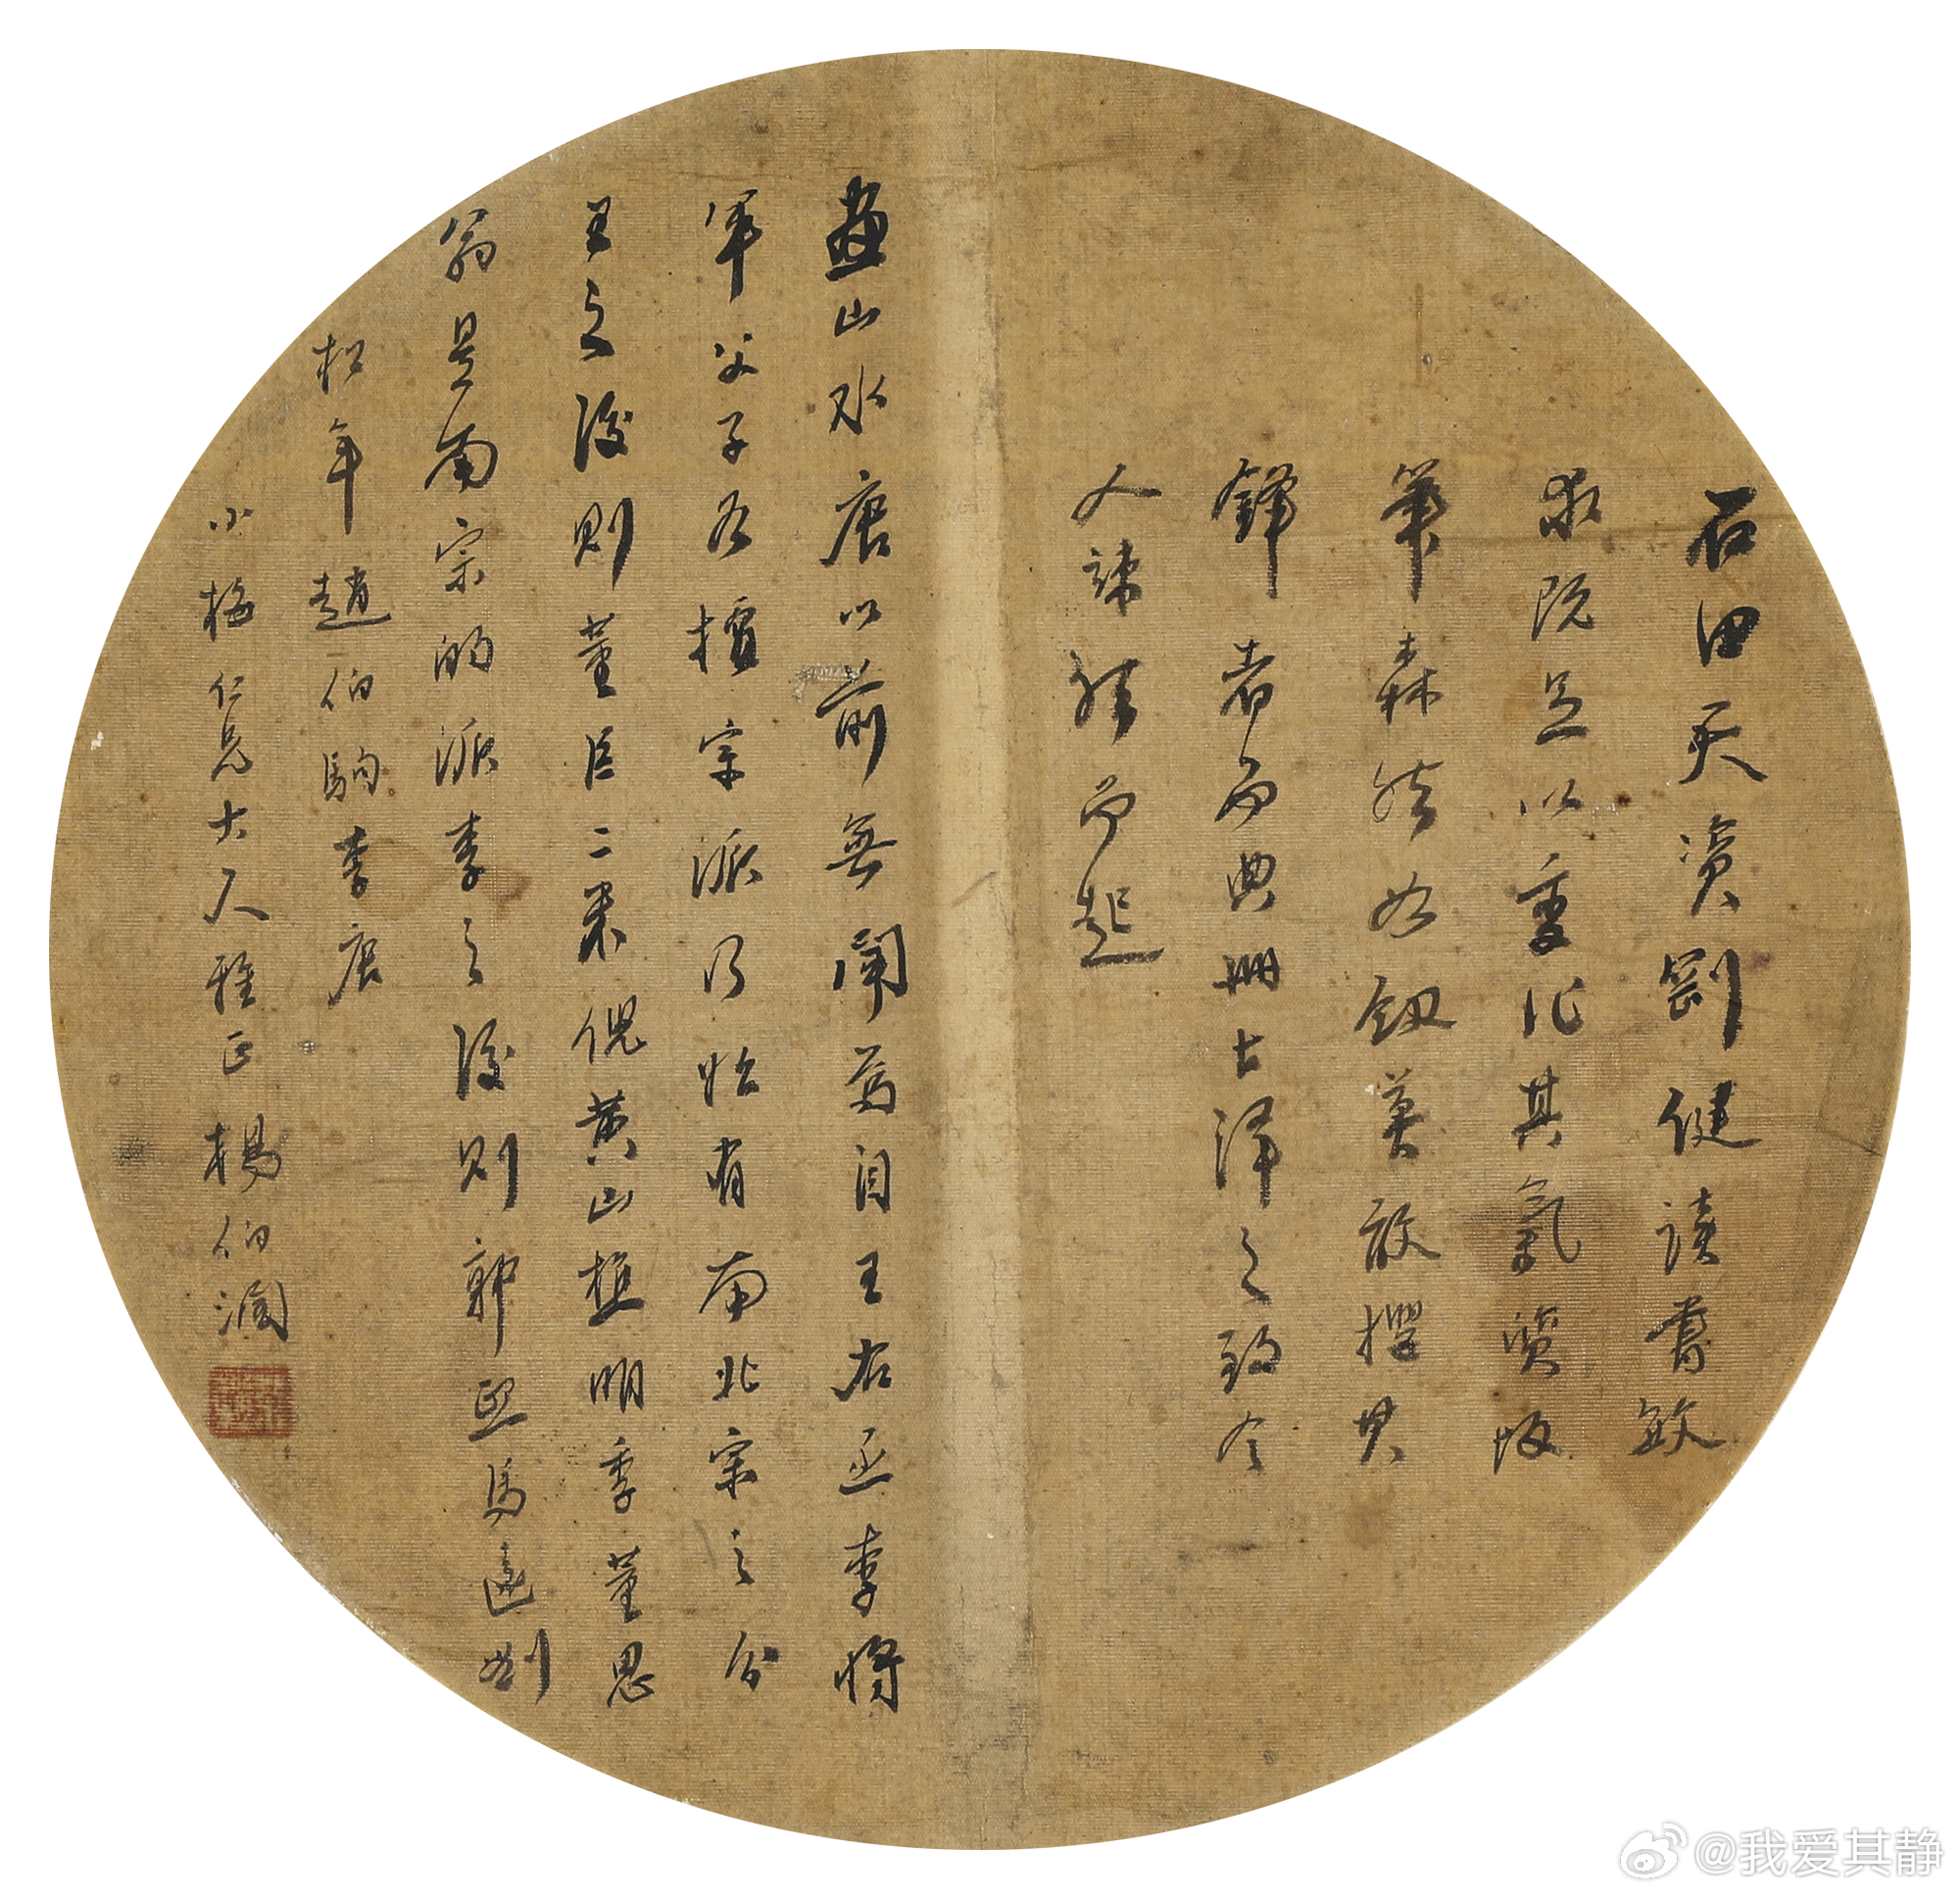 石田天資剛健讀書敏
求既足以變化其氣質故
筆森然如劍莫敢攖其
鋒者而典冊士澤之致令
人竦然而起
畫山水唐以前無聞焉自王右丞李將
軍父子各擅宗派乃始有南北宗之分
王之後則董巨二米倪黃山樵明季董思
翁是南宗的派李之後則郭熙馬遠劉
松年趙伯駒李唐
小梅仁兄大人雅正 楊伯潤
@我爱其静